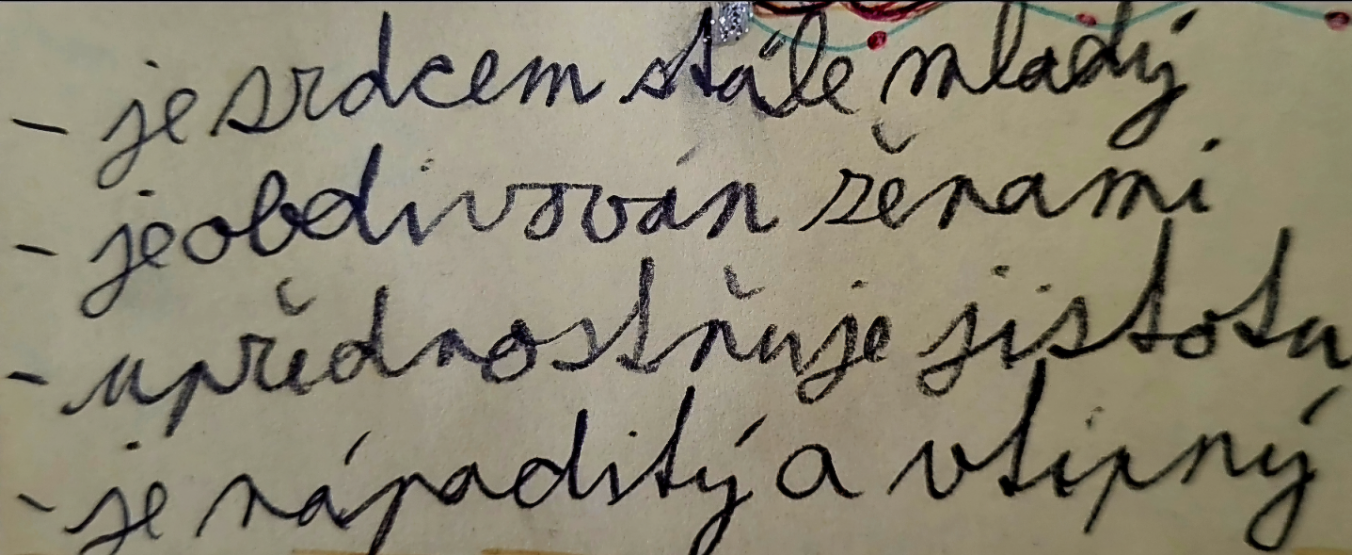 - je srdcem stále mladý
- je obdivován ženami
- upřednostňuje jistotu
- je nápaditý a vtipný